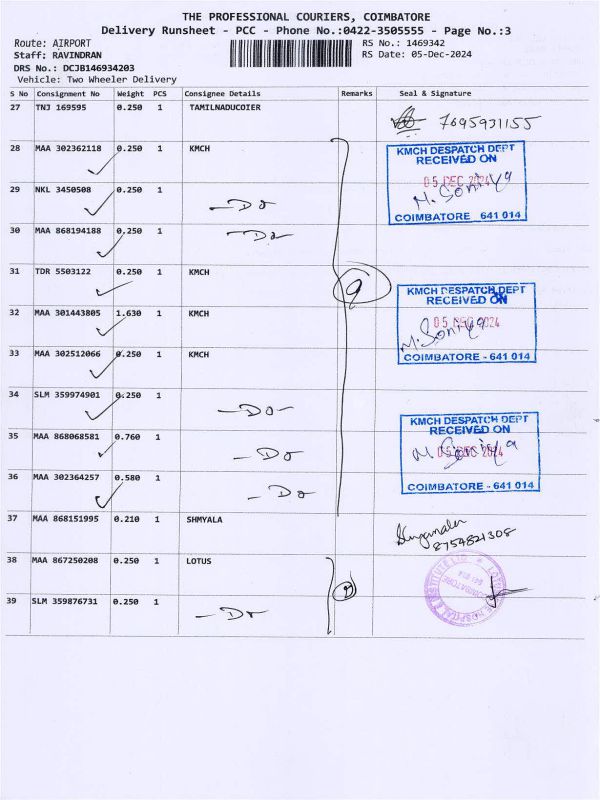 THE PROFESSIONAL COURIERS, COIMBATORE
Delivery Runsheet - PCC - Phone No.:0422-3505555 - Page No.:3
Route: AIRPORT
RS No.: 1469342
Staff: RAVINDRAN
RS Date: 05-Dec-2024
DRS No.: DCJB146934203
Vehicle: Two Wheeler Delivery
S No Consignment No Weight PCS Consignee Details Remarks Seal & Signature
27 TNJ 169595 0.250 1 TAMILNADUCOIER 7695931155
28 MAA 302362118 0.250 1 KMCH
KMCH DESPATCH DEPT
RECEIVED ON
05 DEC 2024
M. Soniya
COIMBATORE 641 014
29 NKL 3450508 0.250 1 -Do
30 MAA 868194188 0.250 1 -Do
31 TDR 5503122 0.250 1 KMCH 9
KMCH DESPATCH DEPT
RECEIVED ON
05 DEC 2024
M. Soniya
COIMBATORE - 641 014
32 MAA 301443805 1.630 1 KMCH
33 MAA 302512066 0.250 1 KMCH
34 SLM 359974901 0.250 1 -Do-
KMCH DESPATCH DEPT
RECEIVED ON
05 DEC 2024
M. Soniya
COIMBATORE - 641 014
35 MAA 868068581 0.760 1 -Do
36 MAA 302364257 0.580 1 -Do
37 MAA 868151995 0.210 1 SHMYALA
8754821308
38 MAA 867250208 0.250 1 LOTUS
39 SLM 359876731 0.250 1 -Do